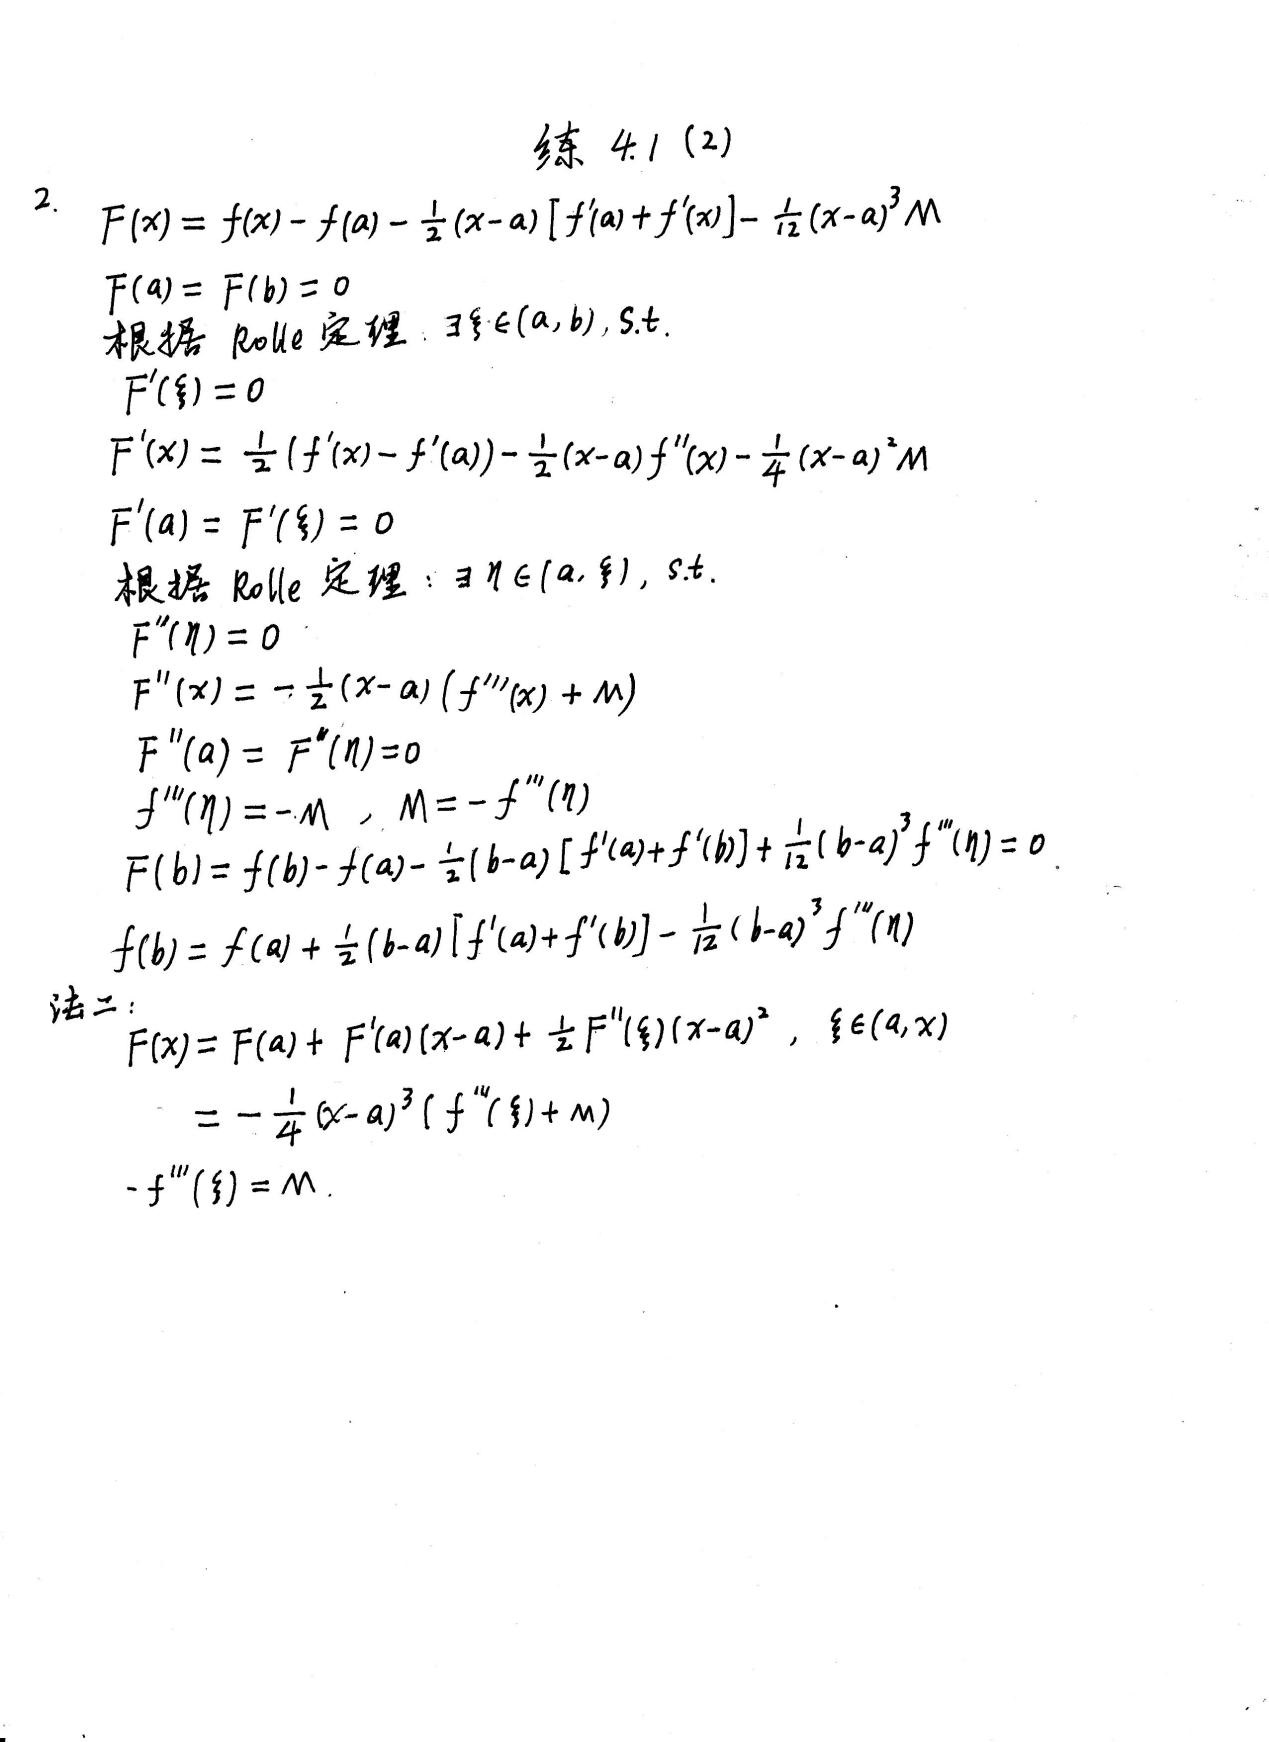 练 4.1 (2)
2. F(x) = f(x) - f(a) - 1/2 (x-a) [f'(a) + f'(x)] - 1/12 (x-a)³ M
F(a) = F(b) = 0
根据 Rolle 定理: ∃ ξ ∈ (a, b), s.t.
F'(ξ) = 0
F'(x) = 1/2 (f'(x) - f'(a)) - 1/2 (x-a) f''(x) - 1/4 (x-a)² M
F'(a) = F'(ξ) = 0
根据 Rolle 定理: ∃ η ∈ (a, ξ), s.t.
F''(η) = 0
F''(x) = - 1/2 (x-a) (f'''(x) + M)
F''(a) = F''(η) = 0
f'''(η) = -M , M = -f'''(η)
F(b) = f(b) - f(a) - 1/2 (b-a) [f'(a) + f'(b)] + 1/12 (b-a)³ f'''(η) = 0.
f(b) = f(a) + 1/2 (b-a) [f'(a) + f'(b)] - 1/12 (b-a)³ f'''(η)
法二:
F(x) = F(a) + F'(a)(x-a) + 1/2 F''(ξ)(x-a)², ξ ∈ (a, x)
= - 1/4 (x-a)³ (f'''(ξ) + M)
-f'''(ξ) = M.